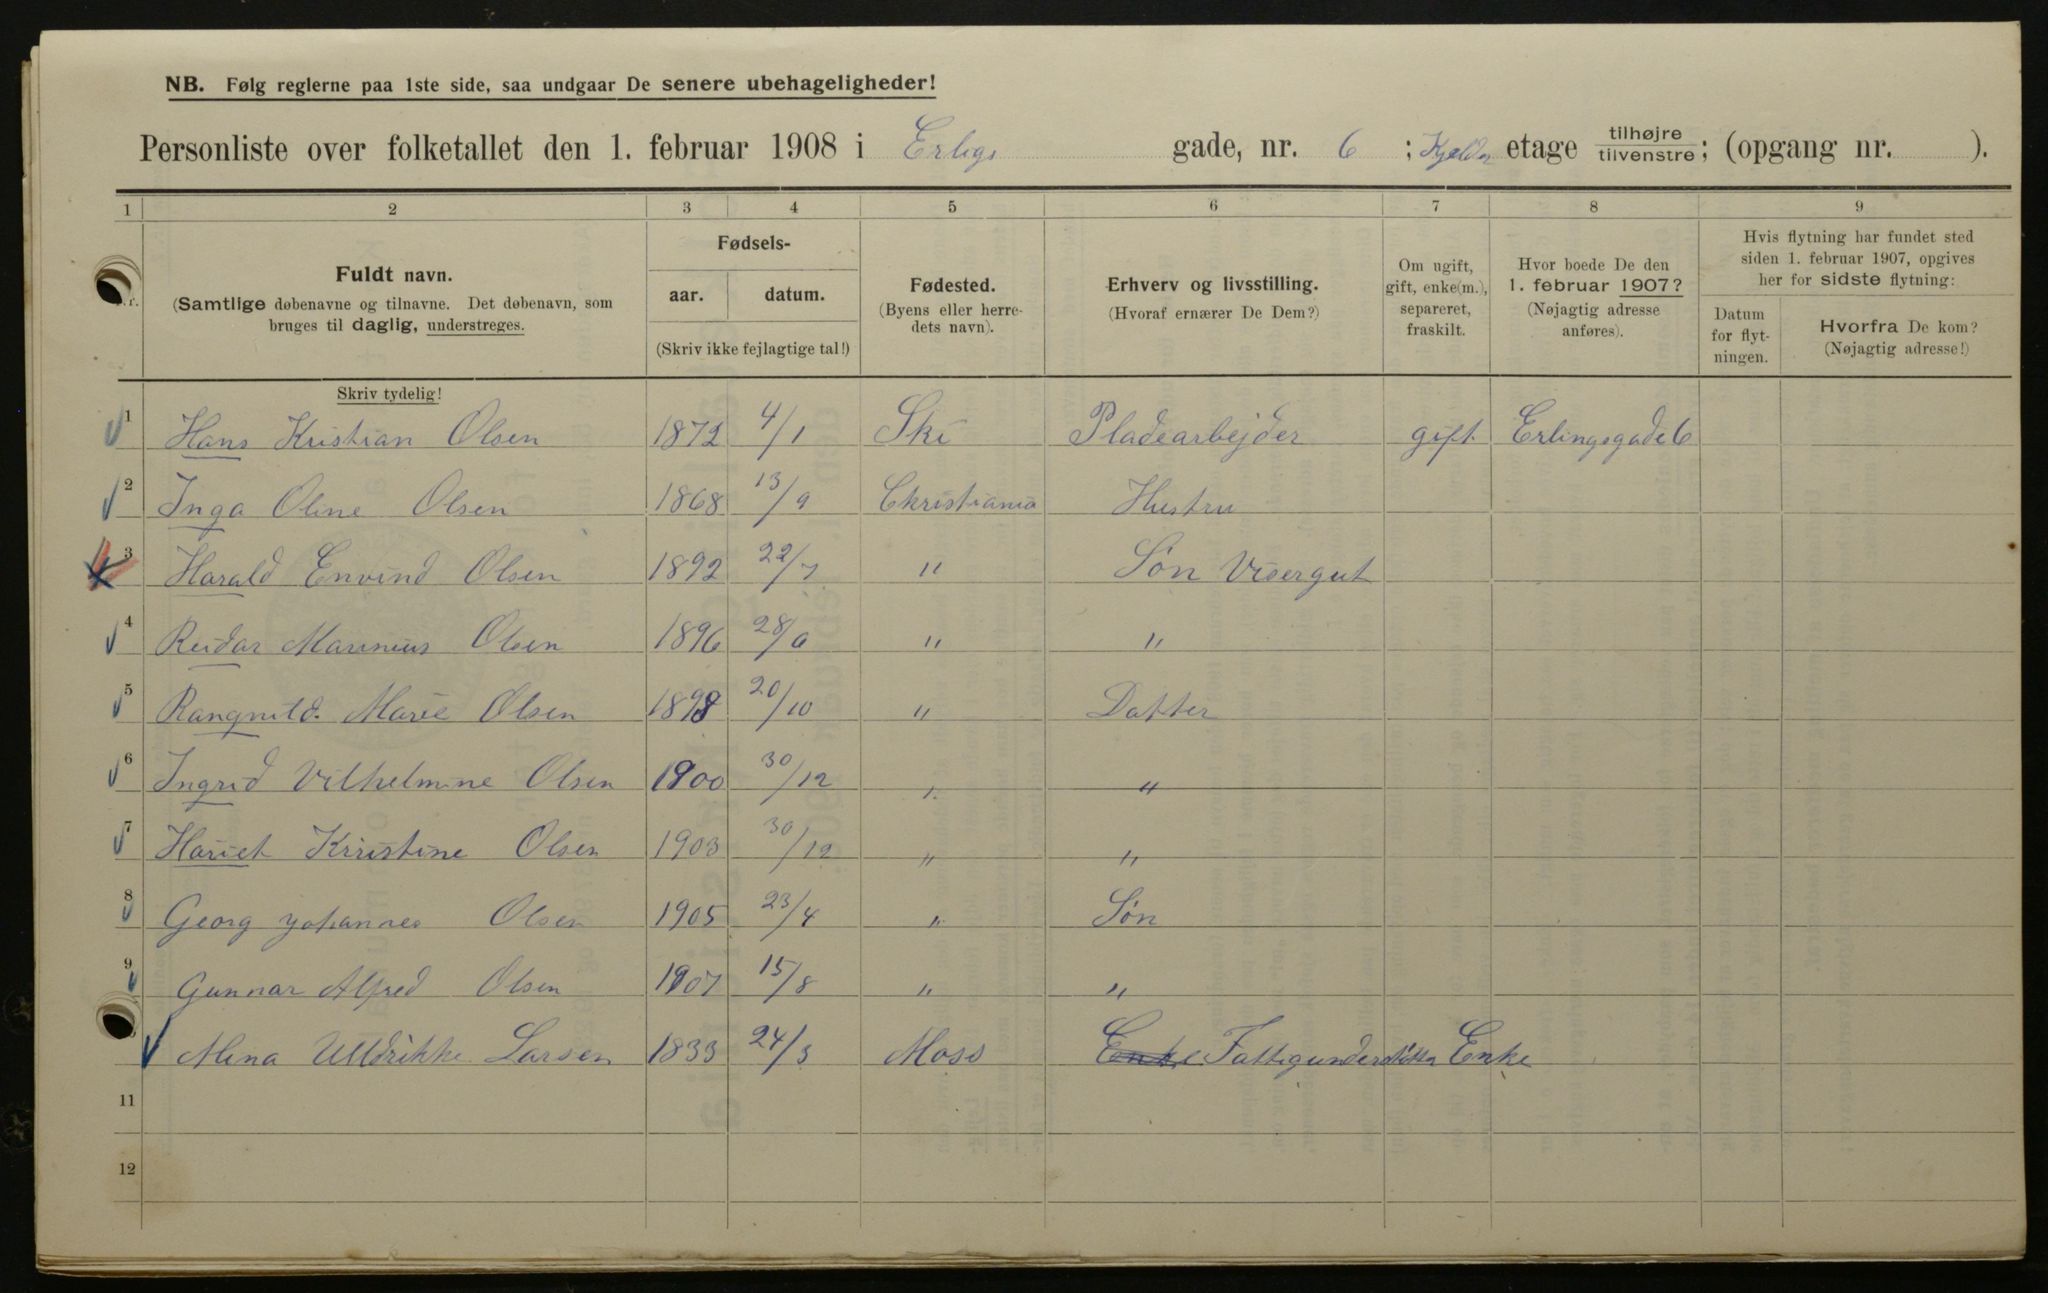 NB. Følg reglerne paa 1ste side, saa undgaar De senere ubehageligheder!
Personliste over folketallet den 1. februar 1908 i Erligs gade, nr. 6 ; Kjelder etage tilhøjre/tilvenstre; (opgang nr. ).
1 2 3 4 5 6 7 8 9
Nr.
Fuldt navn.
(Samtlige døbenavne og tilnavne. Det døbenavn, som
bruges til daglig, understreges.
Skriv tydelig!
Fødsels-
aar. datum.
(Skriv ikke fejlagtige tal!)
Fødested.
(Byens eller herre-
dets navn).
Erhverv og livsstilling.
(Hvoraf ernærer De Dem?)
Om ugift,
gift, enke(m.),
separeret,
fraskilt.
Hvor boede De den
1. februar 1907?
(Nøjagtig adresse
anføres).
Hvis flytning har fundet sted
siden 1. februar 1907, opgives
her for sidste flytning:
Datum
for flyt-
ningen.
Hvorfra De kom?
(Nøjagtig adresse!)
1 Hans Kristian Olsen 1872 4/1 Ski Pladearbejder gift Erlingsgade 6
2 Inga Oline Olsen 1868 13/9 Christiania Hustru
3 Harald Envind Olsen 1892 22/7 " Søn Visergut
4 Reidar Marinius Olsen 1896 28/6 " "
5 Rangnild. Marie Olsen 1898 20/10 " Datter
6 Ingrid Vilhelmine Olsen 1900 30/12 " "
7 Hariet Kristine Olsen 1903 30/12 " "
8 Georg Johannes Olsen 1905 23/4 " Søn
9 Gunnar Alfred Olsen 1907 15/8 " "
Mina Ulldrikke Larsen 1833 24/3 Moss Enke Fattigunderstøtta Enke
11
12